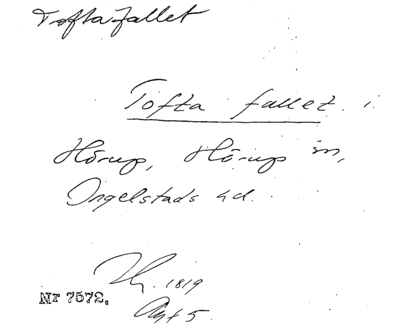 Toftafallet
Tofta fallet i
Hörup, Hörups sn,
Ingelstads hd.
Hy. 1819
Akt 5.
Nr 7572.